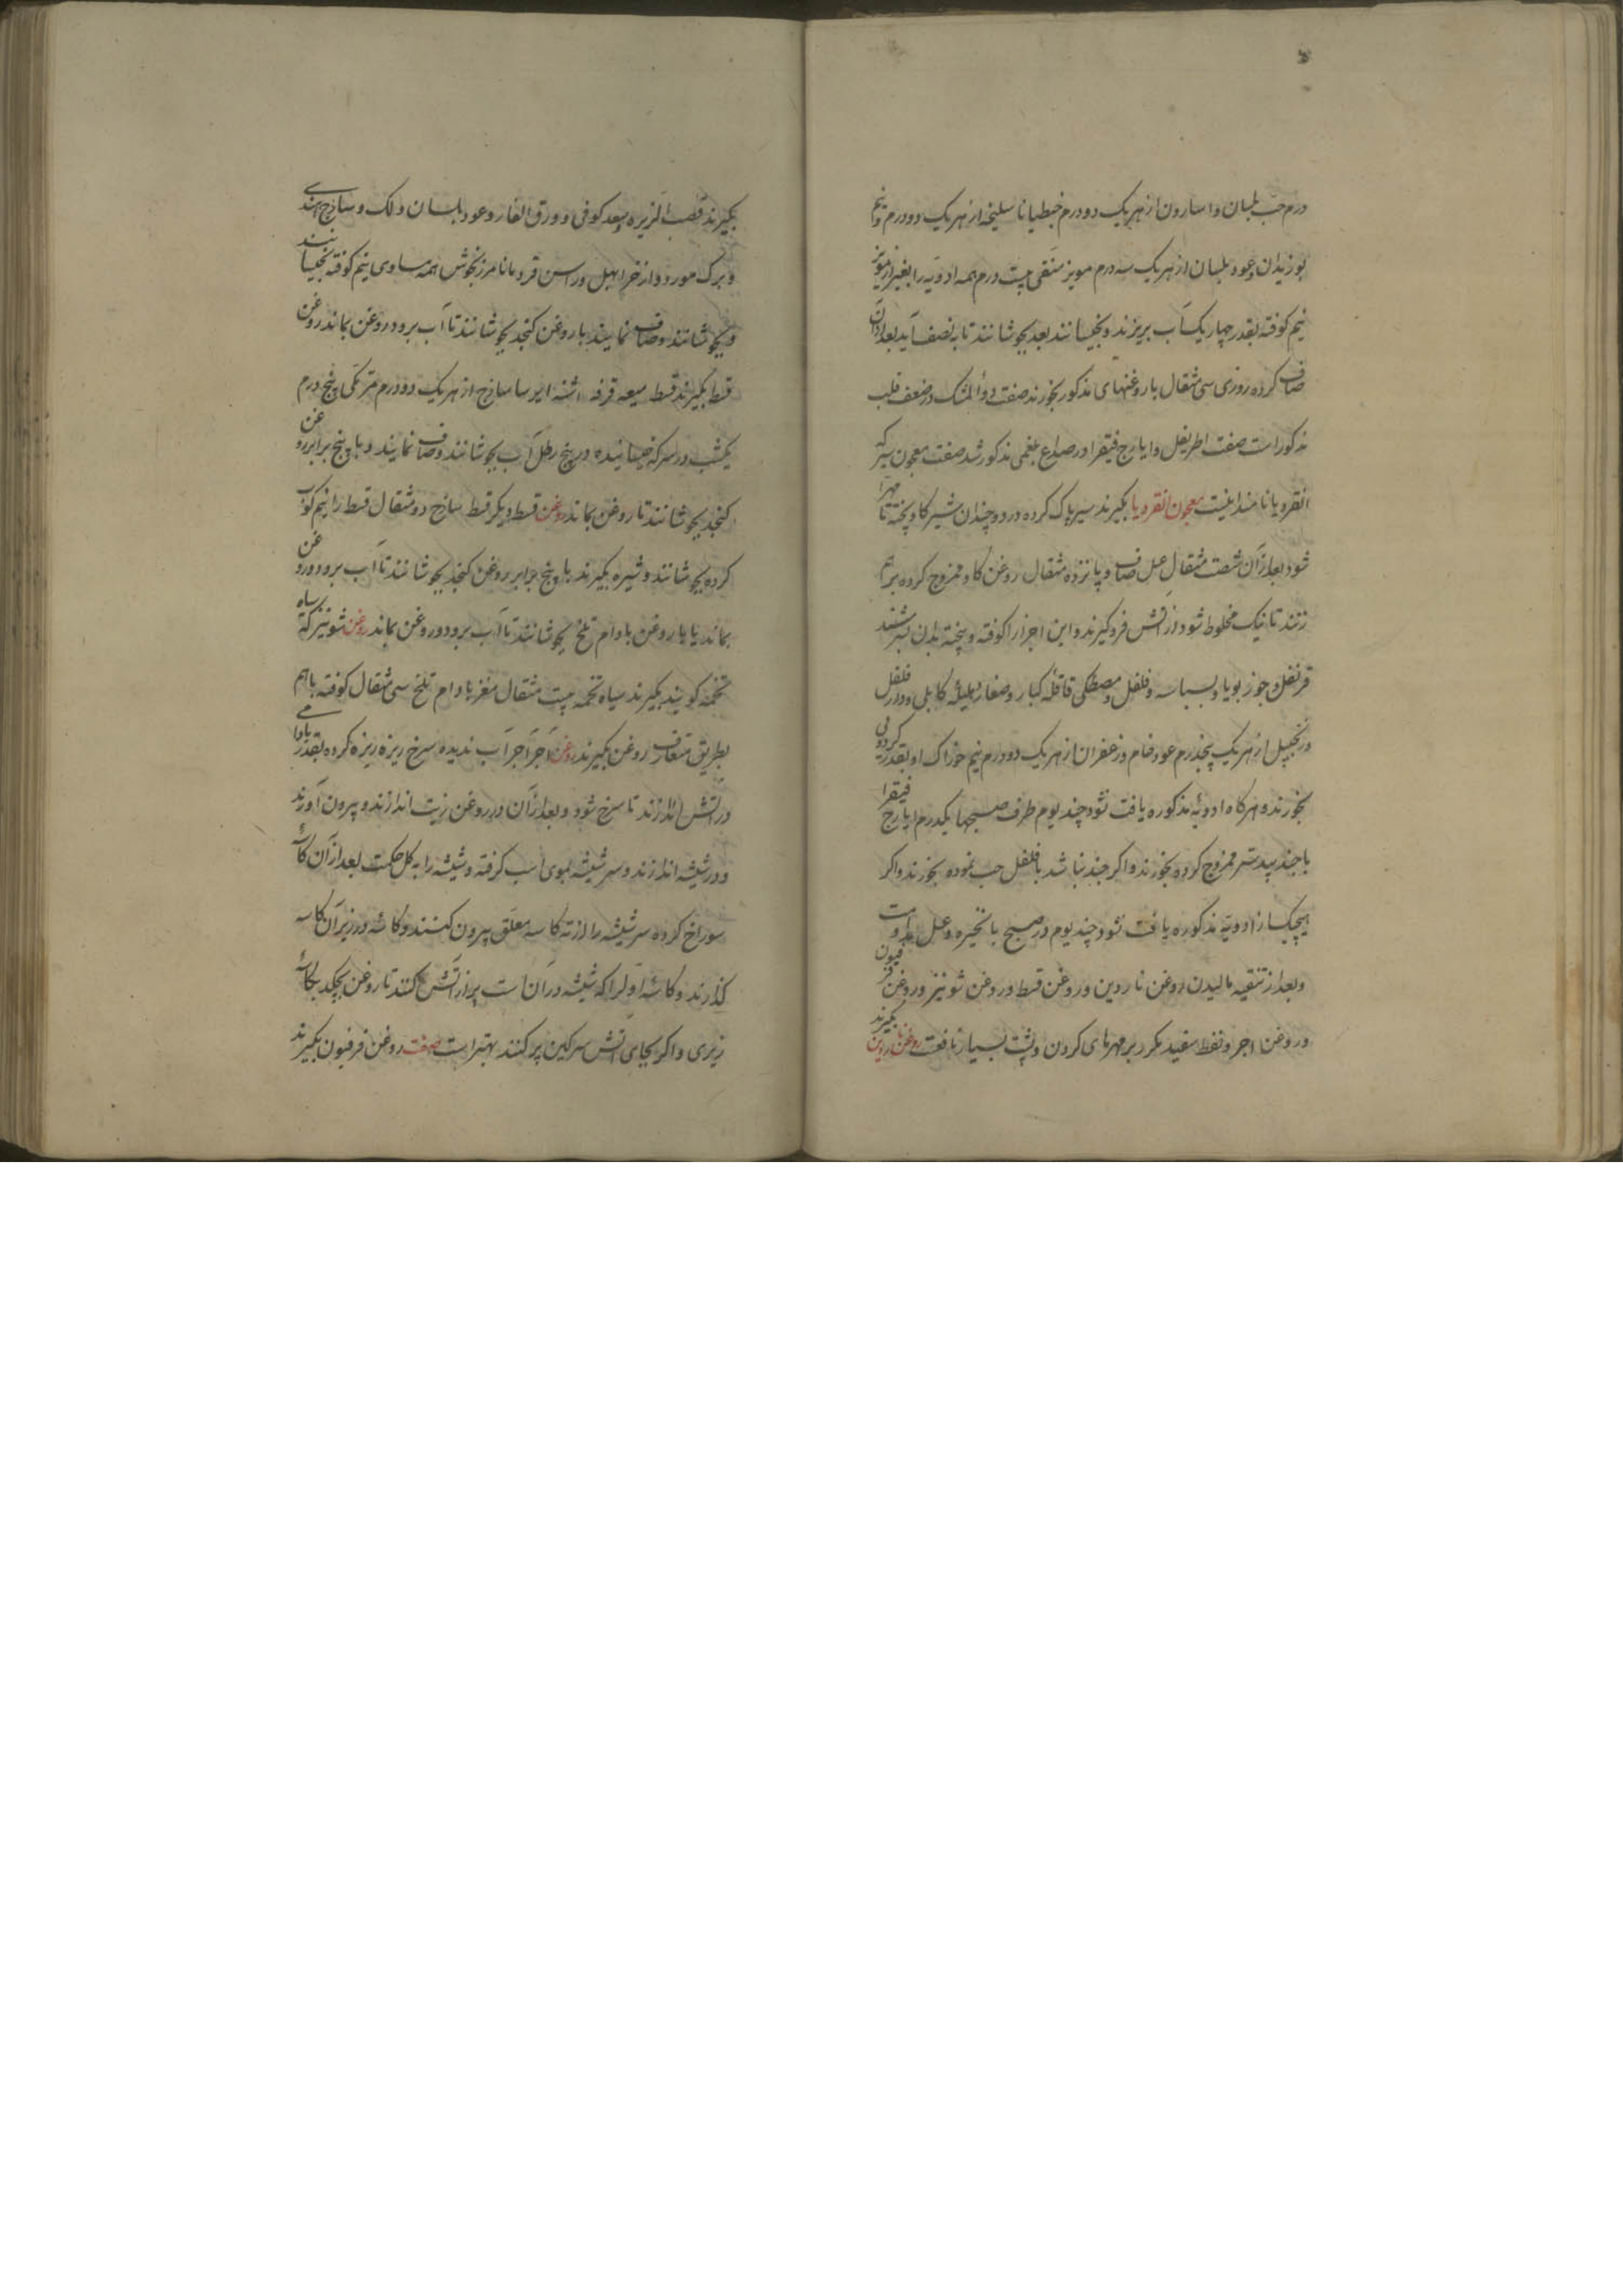 درم حب بلسان و اسارون از هریک دو درم جنطیانا سلیخه از هریک دو درم و نیم
بوزیدان وعود بلسان از هریک سه درم مویز منقی بیست درم همه ادویه را بغیر از مویز
نیم کوفته بقدر چهار یک آب بریزند و بخیسانند بعد بجوشانند تا به نصف آید بعد از آن
صاف کرده روزی سی مثقال با روغنهای مذکور بخورند صفت دوأ المشک در ضعف قلب
مذکور است صفت اطریفل و ایارج فیقرا در صداع بلغمی مذکور شد صفت معجون سیر که
انقردیا نامند اینست معجون انقردیا بکیرند سیر پاک کرده در دو چندان شیر کاو پخته تا مهرا
شود بعد از آن شصت مثقال عسل صاف و پانزده مثقال روغن کاو ممزوج کرده بر هم
زنند تا نیک مخلوط شود از آتش فرو کیرند و این اجزا را کوفته و بیخته بدان بسرشند
قرنفل و جوز بویا و بسباسه و فلفل و مصطکی قاقله کبار و صغار هلیلهٔ کابلی و دارفلفل
و زنجبیل از هریک پنجدرم عود خام و زعفران از هریک دو درم نیم خوراک او بقدر کردوی
بخورند و هرکاه ادویهٔ مذکوره یافت نشود چند یوم طرف صبحها یکدرم ایارج فیقرا
با جند بیدستر ممزوج کرده بخورند و اکر جند نباشد با فلفل حب نموده بخورند و اکر
هیچیک از ادویهٔ مذکوره یافت نشود چند یوم در صبح با و عسل مداومت
وبعد از تنقیه مالیدن روغن ناردین و روغن قسط و روغن شونیز و روغن فرفیون
و روغن اجر و نفط سفید مکرر بر مهرهای کردن و پشت بسیار نافعست روغن ناردین بکیرند
بکیرند قصب الزیره و سعد کوفی و ورق الغار و عود بلسان و لک و ساذج هندی
و برک مورد و اذخر ابهل و راسن قردمانا مرزنجوش همه مساوی نیم کوفته بخیسانند
و بجوشانند وصاف نمایند با روغن کنجد بجوشانند تا آب برود روغن بماند روغن
قسط بکیرند قسط میعه قرفه اشنه ایرسا ساذج از هریک دو درم مرّ مکی پنج درم
یکشب در سرکه خیسانیده در پنج رطل آب بجوشانند وصاف نمایند و با پنج برابر روغن
کنجد بجوشانند تا روغن بماند روغن قسط دیکر قسط ساذج دو مثقال قسط را نیم کوب
کرده بجوشانند و شیره بکیرند با پنج برابر روغن کنجد بجوشانند تا آب برود و روغن
بماند یا با روغن بادام تلخ بجوشانند تا آب برود و روغن بماند روغن شونیز که سیاه
تخمه کویند بکیرند سیاه تخمه بیست مثقال مغز بادام تلخ سی مثقال کوفته با هم
بطریق متعارف روغن بکیرند روغن آجر آجر آب ندیده سرخ ریزه ریزه کرده بقدر بادامی
در آتش اندازند تا سرخ شود و بعد از آن در روغن زیت اندازند و بیرون آورند
و در شیشه اندازند و سر شیشه بموی اسب کرفته و شیشه را به کل حکمت بعد از آن کاسهٔ
سوراخ کرده سر شیشه را از ته کاسه معلق بیرون کنند و کاسهٔ در زیر آن کاسه
گذارند و کاسهٔ اول را که شیشه در آن است پر از آتش کنند تا روغن بچکد بکاسهٔ
زیری و اکر بجای آتش سرکین پر کنند بهتر است صفت روغن فرفیون بکیرند